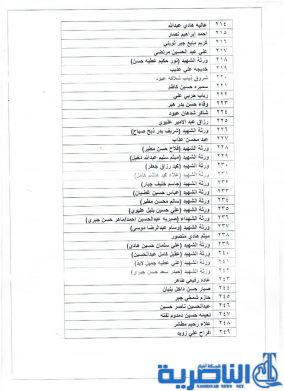 ٢١٤ عالية هادي عبدالله
٢١٥ احمد ابراهيم نصار
٢١٦ كريم مايع جبر
٢١٧ علي عبد الحسين مرتضى
٢١٨ ورثة الشهيد (نور حكيم عطيه حسن)
٢١٩ خديجه علي عذيب
٢٢٠ شروق ذياب
٢٢١ سميره حسين كاظم
٢٢٢ رباب حربي علي
٢٢٣ وفاء حسن بدر هبر
٢٢٤ شاكر شدهان عبود
٢٢٥ رزاق عبد الامير عليوي
٢٢٦ ورثة الشهيد (شريف بدر ذبح صباح)
٢٢٧ عبد محسن عذاب
٢٢٨ ورثة الشهيد (فلاح حسن مطير)
٢٢٩ ورثة الشهيد (ميثم سليم عبدالله دخيل)
٢٣٠ ورثة الشهيد (رزاق جعفر)
٢٣١ ورثة الشهيد (علاء كاظم)
٢٣٢ ورثة الشهيد (جاسم خليف جبار)
٢٣٣ ورثة الشهيد (عباس حسين غضبان)
٢٣٤ ورثة الشهيد (سالم محسن مطير)
٢٣٥ ورثة الشهيد (علي حسين عليوي)
٢٣٦ ورثة الشهداء (صبريه عبدالحسين احمد/ماهر حسن جبري)
٢٣٧ ورثة الشهيد (وسام عبدالرضا موسى)
٢٣٨ ميثم هادي منصور
٢٣٩ ورثة الشهيد (علي سلمان حسين هادي)
٢٤٠ ورثة الشهيد (عقيل كامل عبدالحسين)
٢٤١ ورثة الشهيد (علي عطيه جميل)
٢٤٢ ورثة الشهيد (حيدر سعد حسن جبري)
٢٤٣ غاده ربيعي ظاهر
٢٤٤ صبار حسن داخل
٢٤٥ حازم شمخي جبر
٢٤٦ عبدالحسين ناصر حسين
٢٤٧ نعيمه حسين لفته
٢٤٨ علاء رحيم مطشر
٢٤٩ افراح علي زويد
الناصرية